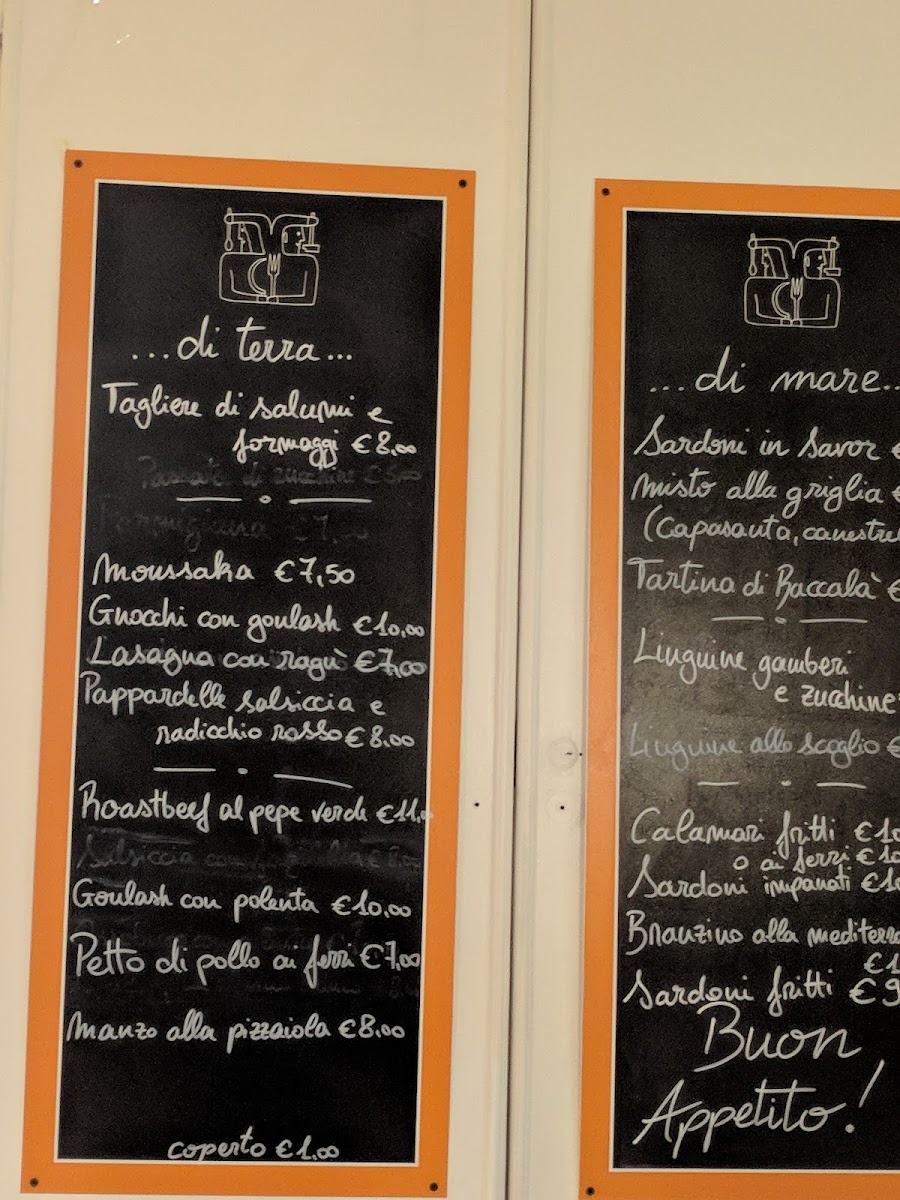 ...di terra...
Tagliere di salumi e
formaggi €8,00
Passata di zucchine €5,00
Parmigiana €7,00
Moussaka €7,50
Gnocchi con goulash €10,00
Lasagna con ragù €7,00
Pappardelle salsiccia e
radicchio rosso €8,00
Roastbeef al pepe verde €11,0
Salsiccia con
Goulash con polenta €10,00
Petto di pollo ai ferri €7,00
Manzo alla pizzaiola €8,00
coperto €1,00
...di mare..
Sardoni in Savor €
Misto alla griglia €
(Capasanta, canestre
Tartina di Baccalà €
Linguine gamberi
e zucchine
Linguine allo scoglio €
Calamari fritti €10
o ai ferri €10
Sardoni impanati €10
Branzino alla mediterra
€1
Sardoni fritti €9
Buon
Appetito!